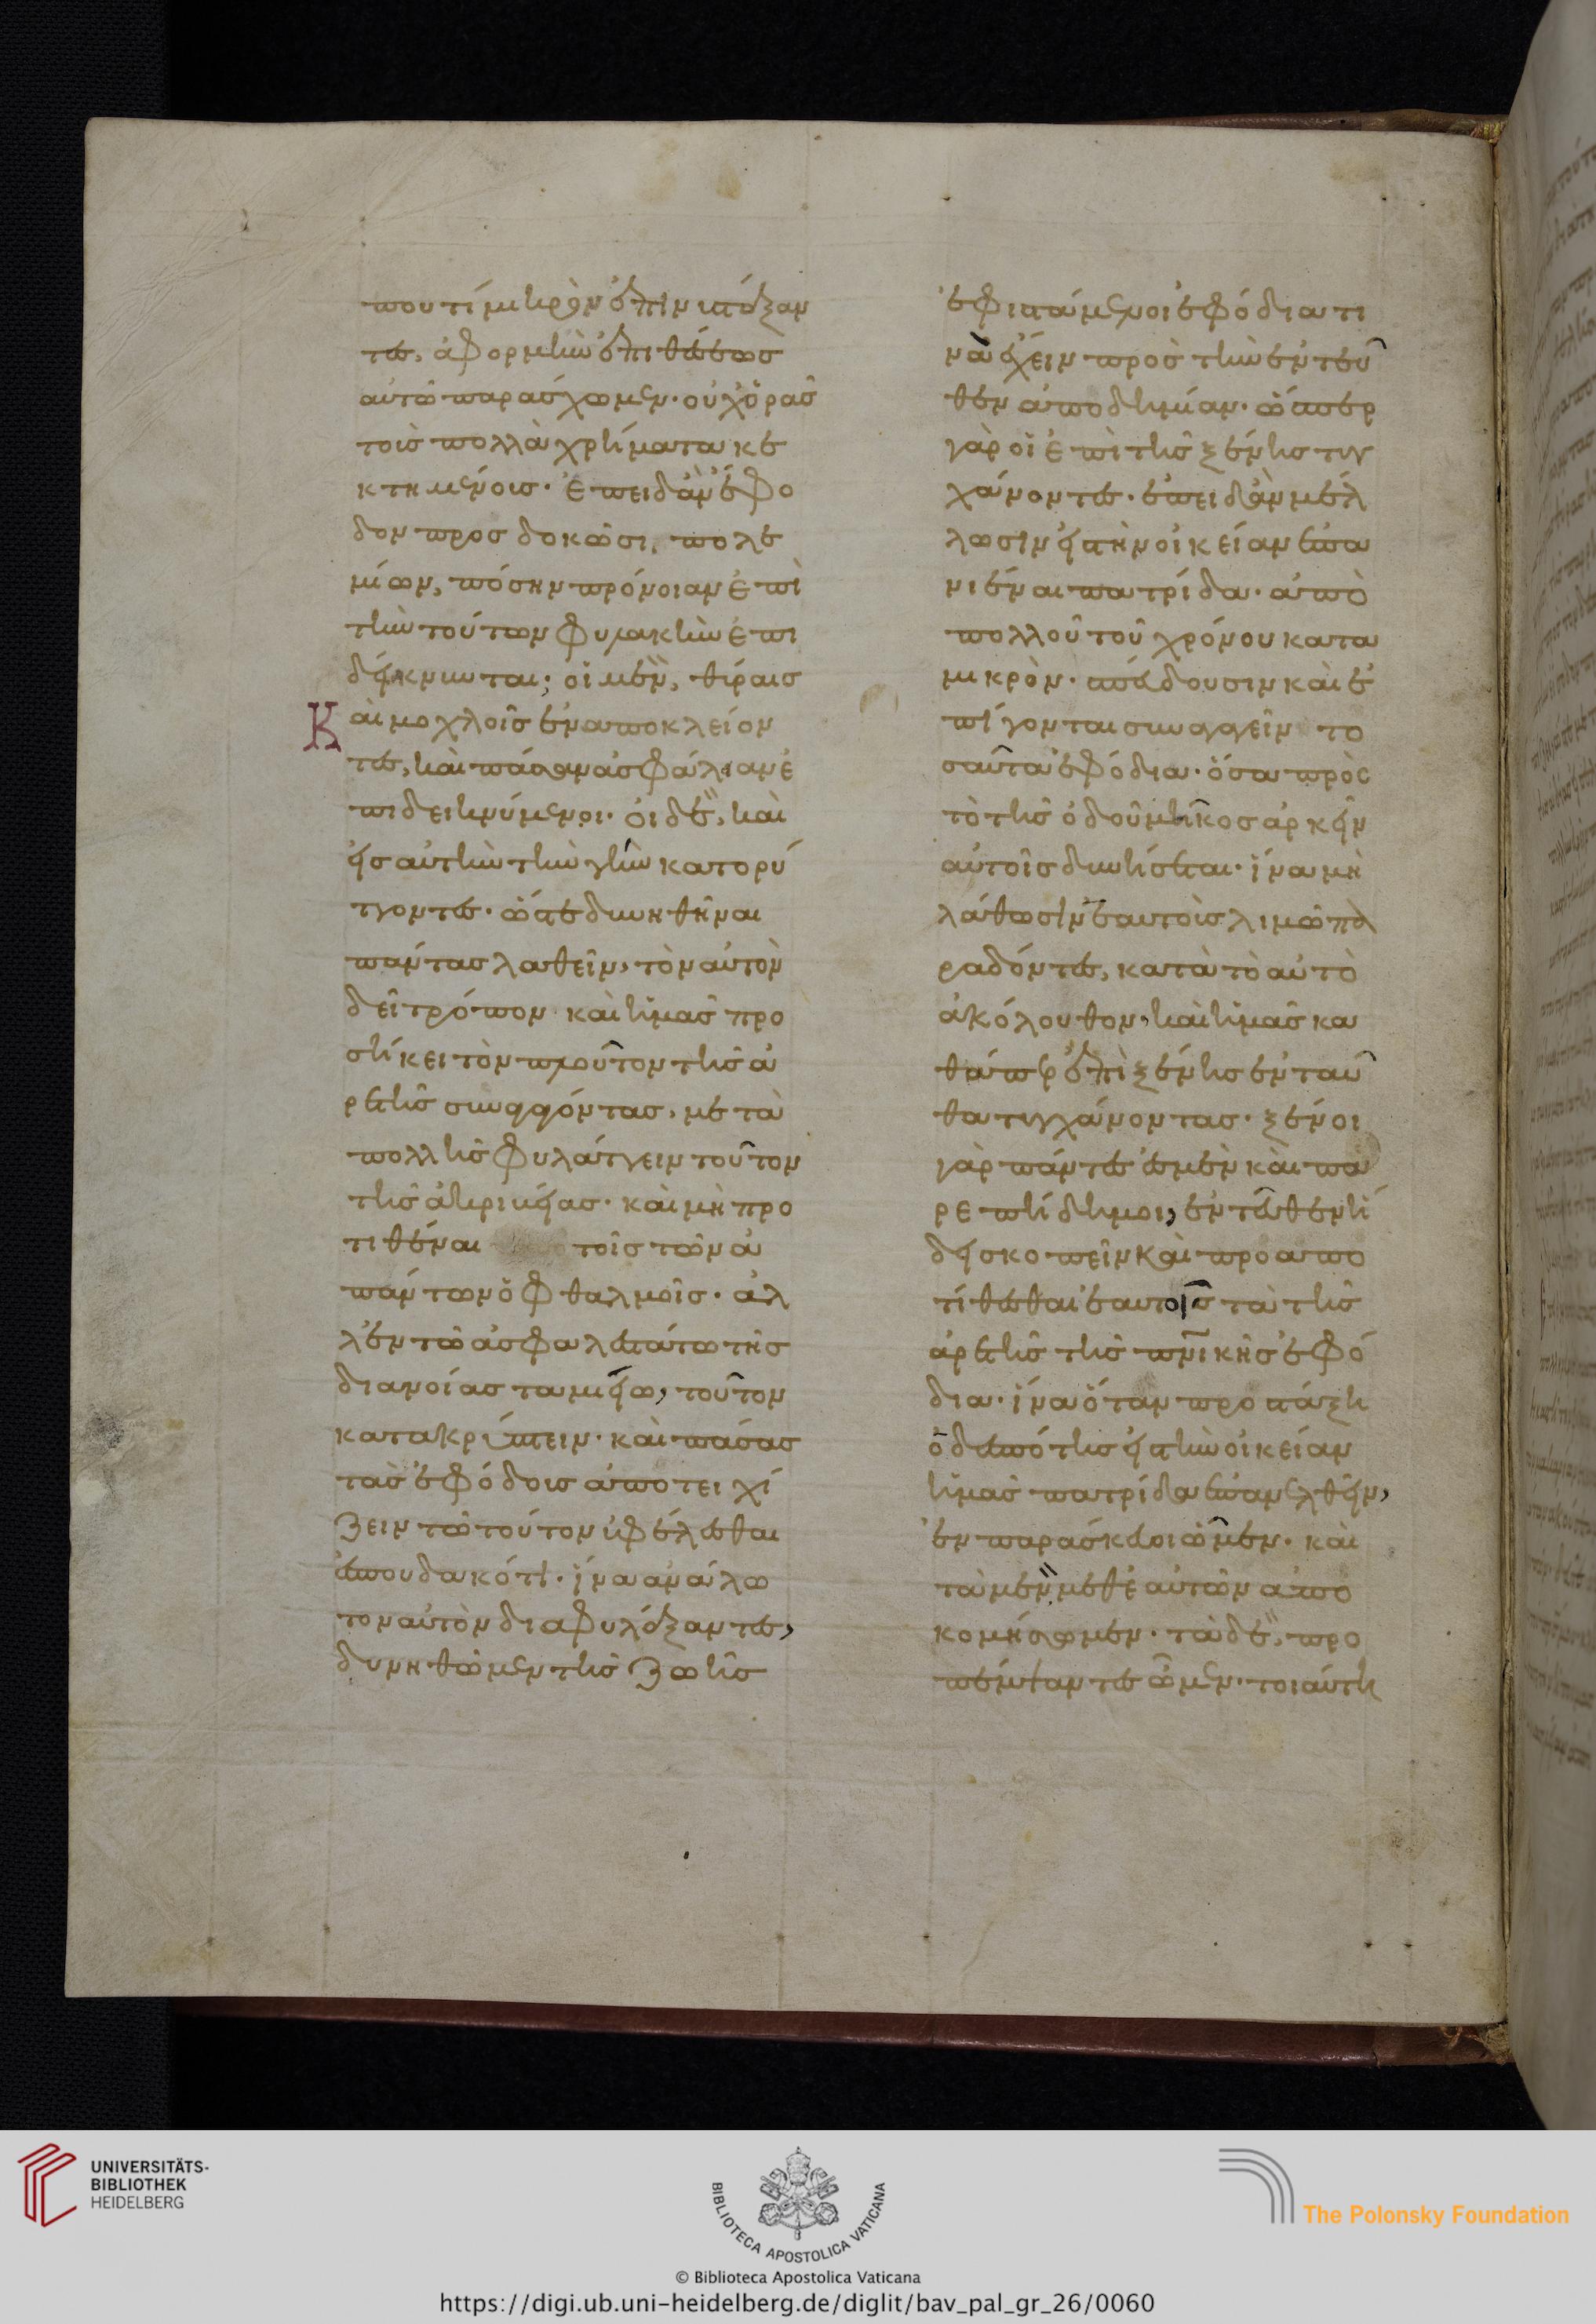 που τί μικρὸν ἐπινυστάξαν
τες, ἀφορμὴν ἐπιθέσεως
αὐτῶ παράσχωμεν· οὐχ ὁρᾶς
τοῖς πολλὰ χρήματα κε
κτημένοις· ἐπειδὰν ἔφο
δον προσδοκῶσι, πολε
μίων, πόσην πρόνοιαν ἐπὶ
τὴν τούτων φυλακὴν ἐπι
δείκνυνται; οἱ μὲν, θύραις
Καὶ μοχλοῖς ἐναποκλείον
τες, καὶ πᾶσαν ἀσφάλιαν ἐ
πιδεικνύμενοι· οἱ δὲ, καὶ
εἰς αὐτὴν τὴν γῆν κατορύ
ττοντες· ὥστε δυνηθῆναι
πάντας λαθεῖν, τὸν αὐτὸν
δεῖ τρόπον καὶ ἡμᾶς προ
σήκει τὸν πλοῦτον τῆς ἀ
ρετῆς συναγαγόντας, μετὰ
πολλῆς φυλάττειν τοῦτον
τῆς ἀκριβείας· καὶ μὴ προ
τιθέναι τοῖς τῶν ἁ
πάντων ὀφθαλμοῖς· ἀλ
λ' ἐν τῶ ἀσφαλεστάτω τῆς
διανοίας ταμιείω, τοῦτον
κατακρύπτειν· καὶ πάσας
τὰς ἐφόδους ἀποτειχί
ζειν τῶ τοῦτον ὑφελέσθαι
ἐσπουδακότι· ἵνα ἀνάλω
τον αὐτὸν διαφυλάξαντες,
δυνηθῶμεν τῆς ζωῆς
ἐφιστάμενοι ἐφόδια τι
νὰ ἔχειν πρὸς τὴν ἐντεῦ
θεν ἀποδημίαν· ὥσπερ
γὰρ οἱ ἐπὶ τῆς ξένης τυγ
χάνοντες· ἐπειδὰν μέλ
λωσιν εἰς τὴν οἰκείαν ἐπα
νιέναι πατρίδα· ἀπὸ
πολλοῦ τοῦ χρόνου κατα
μικρὸν· σπεύδουσιν καὶ ἐ
πείγονται συναγαγεῖν το
σαῦτα ἐφόδια· ὅσα πρὸς
τὸ τῆς ὁδοῦ μῆκος ἀρκεῖν
αὐτοῖς δυνήσεται· ἵνα μὴ
λάθωσιν ἑαυτοὺς λιμῶ πα
ραδόντες, κατὰ τὸ αὐτὸ
ἀκόλουθον, καὶ ἡμᾶς κα
θάπερ ἐπὶ ξένης ἐνταῦ
θα τυγχάνοντας· ξένοι
γὰρ πάντες ἐσμὲν καὶ πα
ρεπίδημοι, ἐντεῦθεν ἤ
δη σκοπεῖν καὶ προαπο
τίθεσθαι ἑαυτοῖς τὰ τῆς
ἀρετῆς τῆς πνικῆς ἐφό
δια· ἵνα ὅταν προστάξη
ὁ δεσπότης εἰς τὴν οἰκείαν
ἡμᾶς πατρίδα ἐπανελθεῖν,
ἐν παρασκευῆ ὦμεν· καὶ
τὰ μὲν μεθ' ἑαυτῶν ἀπο
κομήσωμεν· τὰ δὲ, προ
πέμψαντες ὦμεν· τοιαύτη
UNIVERSITÄTS-
BIBLIOTHEK
HEIDELBERG
BIBLIOTECA APOSTOLICA VATICANA
© Biblioteca Apostolica Vaticana
The Polonsky Foundation
https://digi.ub.uni-heidelberg.de/diglit/bav_pal_gr_26/0060